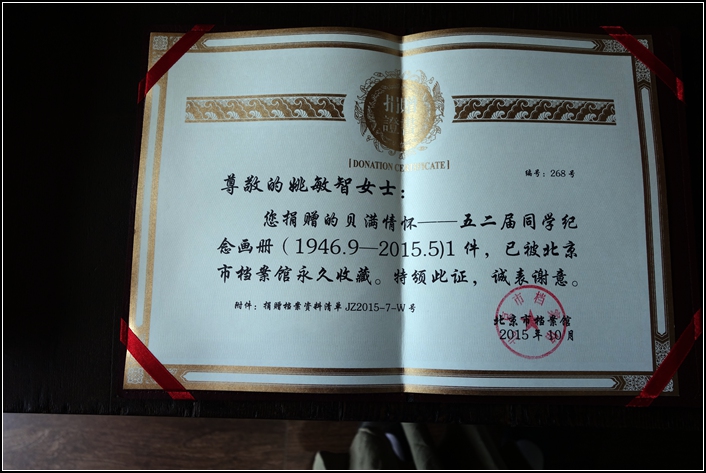 捐赠
证书
[DONATION CERTIFICATE]
编号：268号
尊敬的姚敏智女士：
您捐赠的贝满情怀——五二届同学纪
念画册（1946.9—2015.5)1 件，已被北京
市档案馆永久收藏。特颁此证，诚表谢意。
附件：捐赠档案资料清单 JZ2015-7-W 号
北京市档案馆
2015 年 10 月